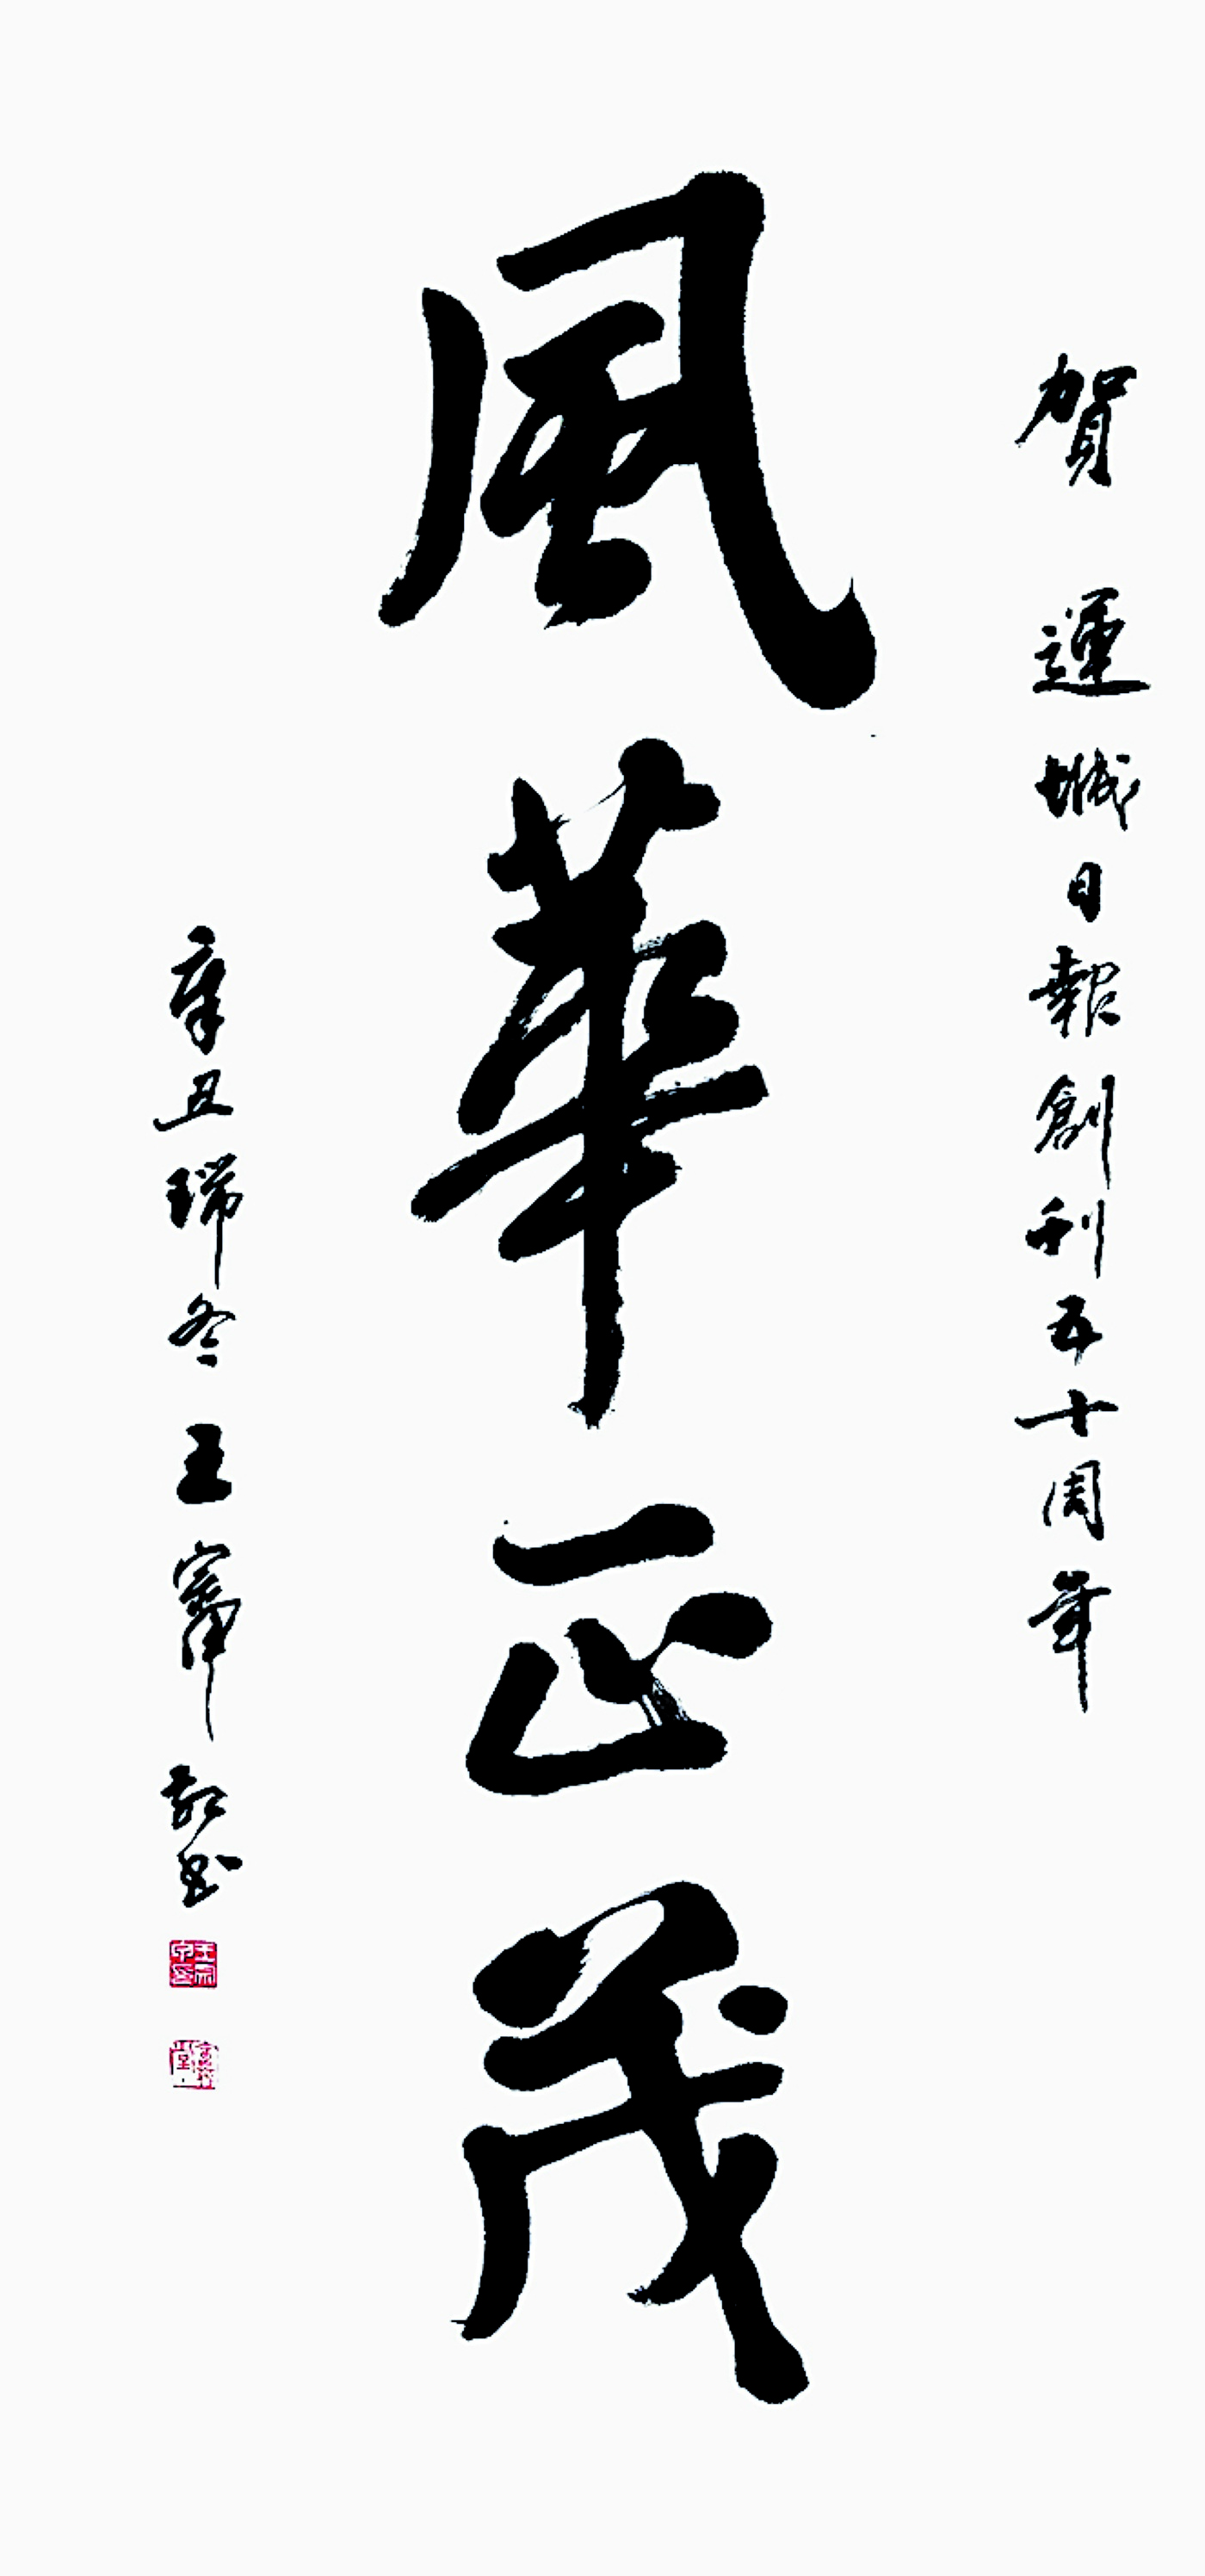 賀運城日報創刊五十周年
風華正茂
辛丑瑞冬王寧敬书